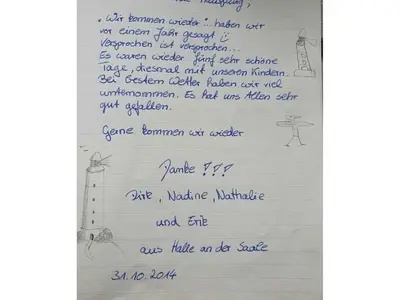 „Wir kommen wieder"... haben wir
vor einem Jahr gesagt
Versprochen ist versprochen...
Es waren wieder fünf sehr schöne
Tage, diesmal mit unseren Kindern.
Bei bestem Wetter haben wir viel
unternommen. Es hat uns Allen sehr
gut gefallen.
Gerne kommen wir wieder
Danke !!!
Dirk, Nadine, Nathalie
und Erik
aus Halle an der Saale
31.10.2014